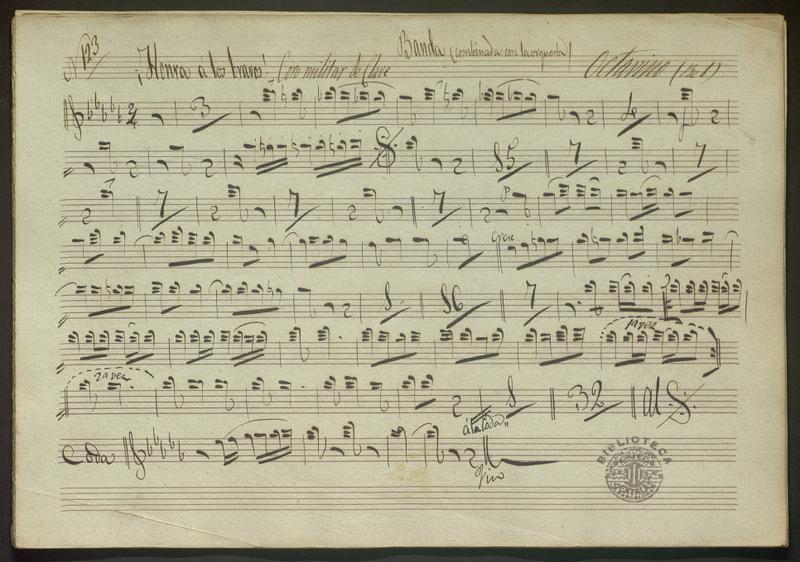 Nº 123
Banda (combinada con la orquesta)
¡Honra a los bravos! = Coro militar de Clavé
Octavino (Re b)
3
85
7
7
7
7
7
P
Cresc
7
1ª vez
2ª vez
32
al
á la Coda
Coda
Fin
BIBLIOTECA
BARCELONA